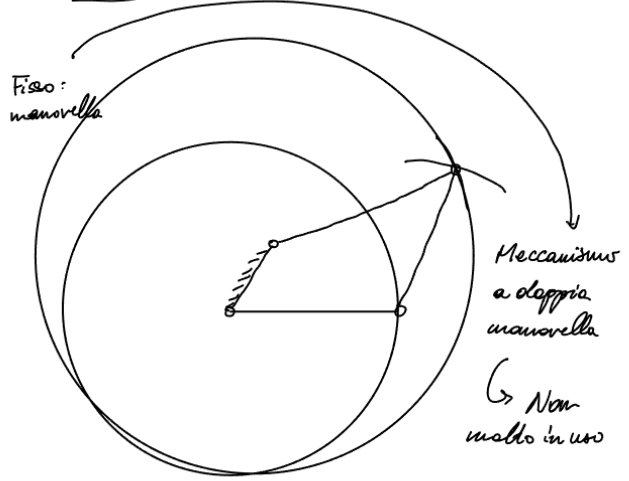 Fisso:
manovella
Meccanismo
a doppia
manovella
Non
molto in uso